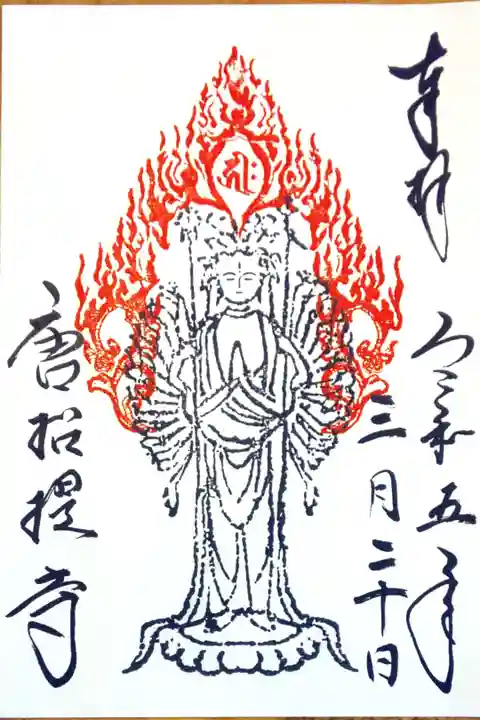 奉拝
令和五年
三月二十日
𑖮𑖿𑖨𑖱𑖾
唐招提寺